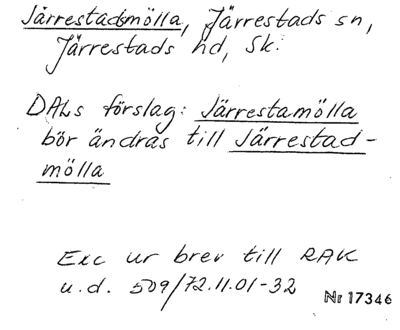 Järrestadsmölla, Järrestads sn,
Järrestads hd, Sk.
DALs förslag: Järrestamölla
bör ändras till Järrestad-
mölla
Exc ur brev till RAK
u.d. 509/72.11.01-32
Nr 17346